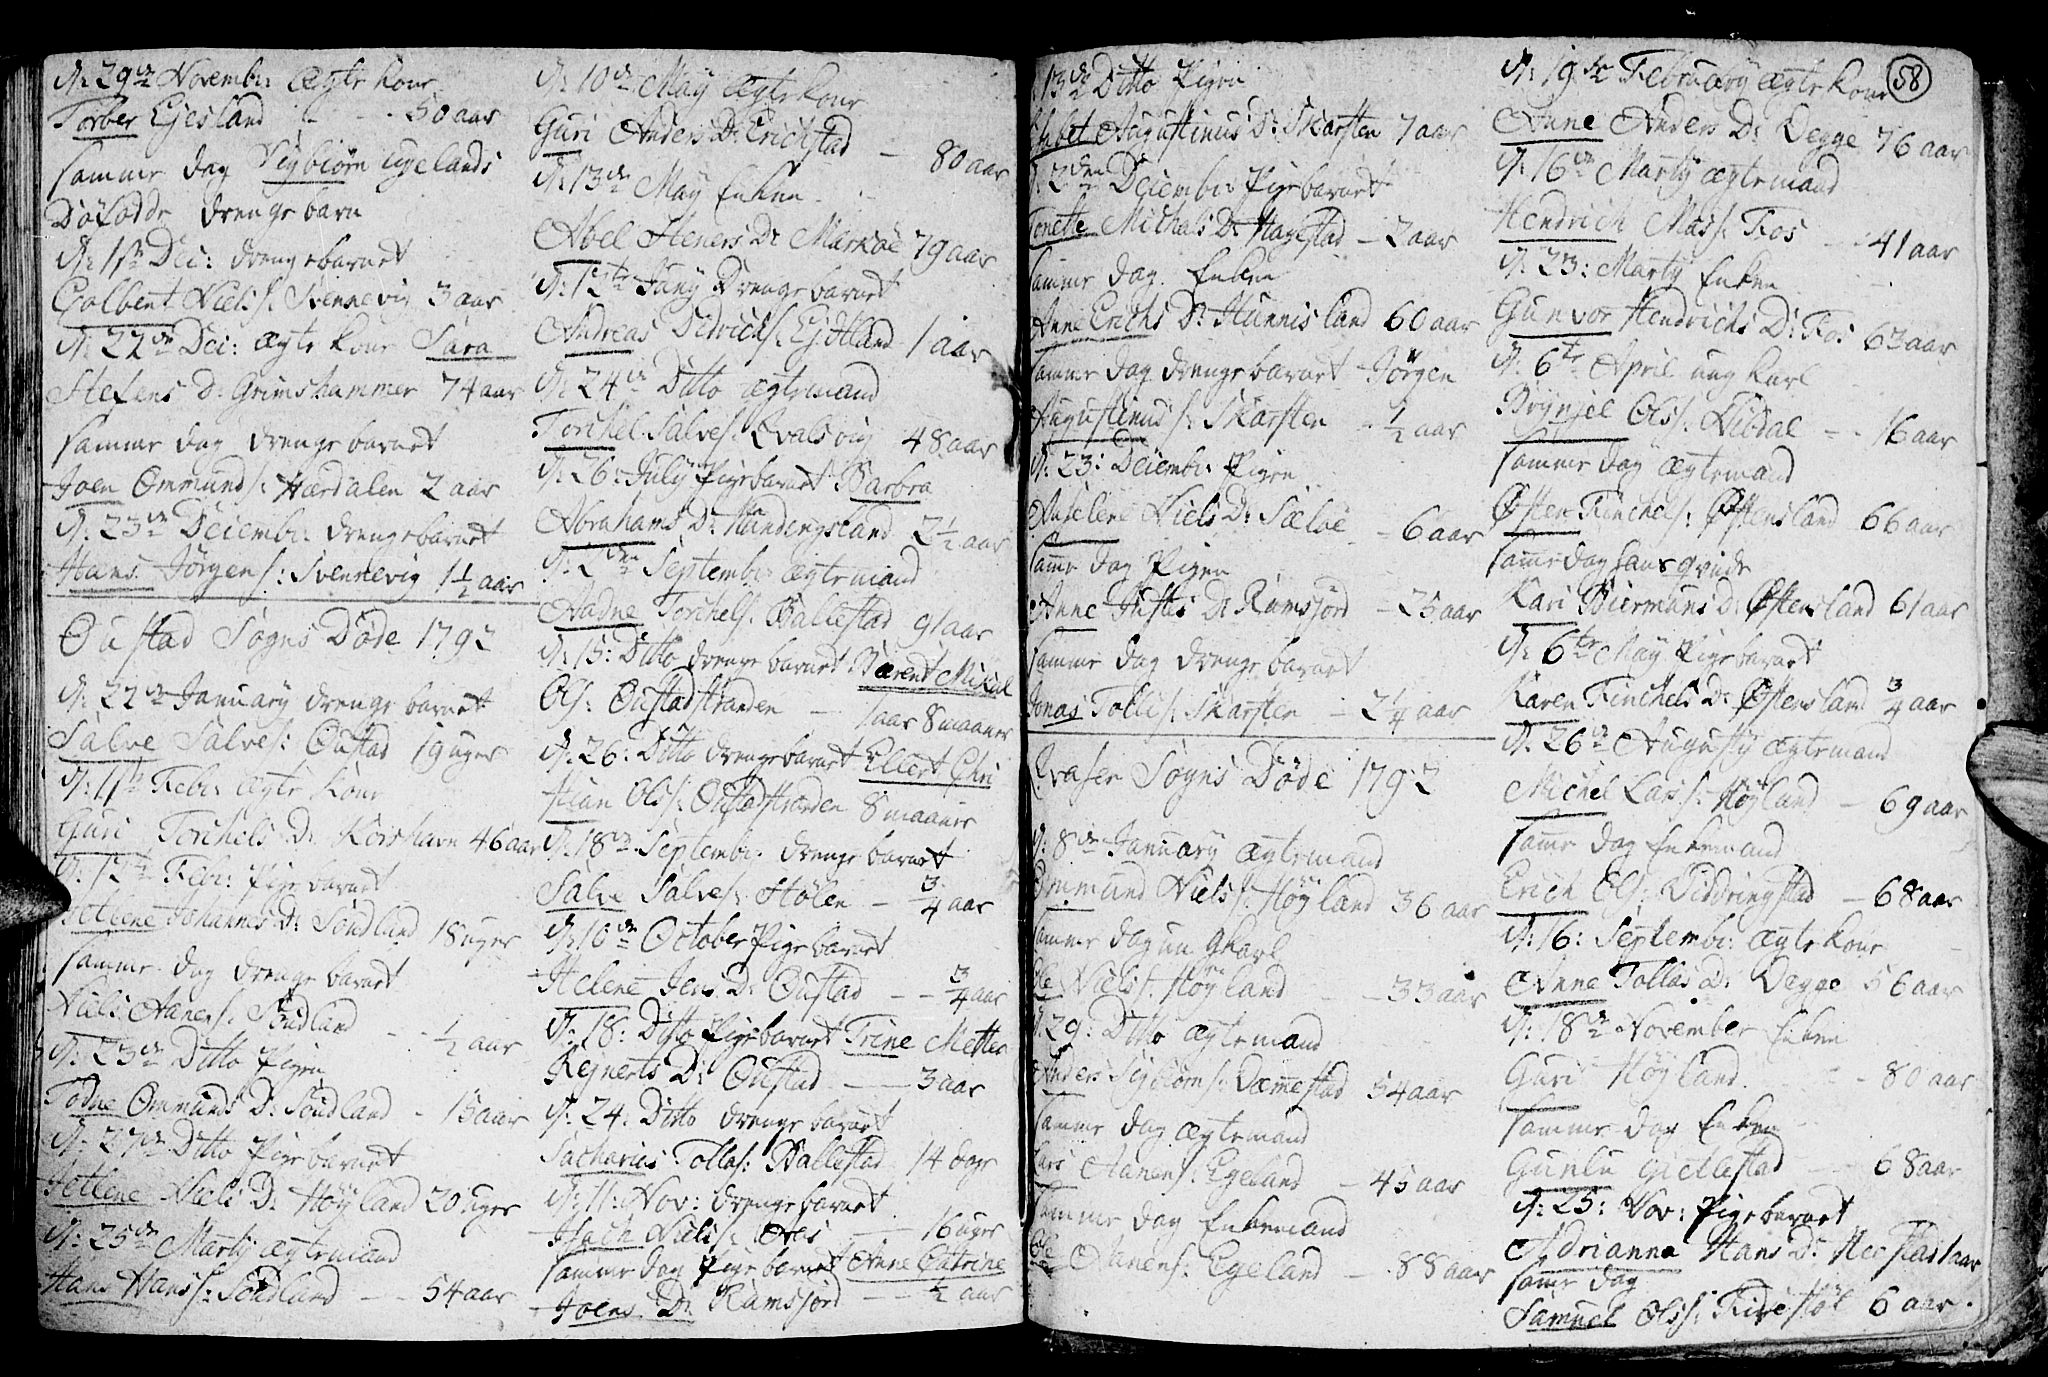 d: 29de Novemb: ægte kone
Torber Ejesland - - 50 aar
samme dag Sigbiørn Egelands
Døfødde drengebarn
d: 11te Dec: drengebarnet
Colbent Niels s: Svennevig 3 aar
d: 22de Dec: ægte kone Sara
Stefens D: Grimshammer 74 aar
samme dag drengebarnet
Joen Ommund s: Hærdalen 2 aar
d: 23de Decemb: drengebarnet
Hans Jörgen s: Svennevig 1 1/2 aar
Oustad Sogns Döde 1792
d: 22de January drengebarnet
Salve Salves: Oustad 19 uger
d: 11te Feb: ægte kone
Guri Torchels D: Korshavn 46 aar
d: 12te Feb: Pigebarnet
Johannes D: Söndland 18 uger
samme dag drengebarnet
Niels Aanens: Söndland - 1/2 aar
d: 23de Ditto Pigen
Todne Ommunds D: Söndland - 15 aar
d: 27de Ditto Pigebarnet
Niels D: Höyland 20 uger
d: 25de Marty ægtemand
Hans Hans s: Söndland - - 54 aar
d: 10de May ægte kone
Guri Anders D: Erichstad - 80 aar
d: 13de May Enken
Abel Steners D: Markøe 79 aar
d: 12te Juny Drengebarnet
Andreas Didrich s: Ejdtland 1 aar
d: 24de Ditto ægtemand
Torchel Salves: Qvalsvig 48 aar
d: 26: July Pigebarnet Barbra
Abrahams D: Handingsland 2 1/2 aar
d: 2den Septemb: ægtemand
Aadne Torchels: Ballestad 91 aar
d: 15: Ditto drengebarnet Bærent Mikal
Ols: Oustadstranden - 1 aar 8 maaner
d: 26: Ditto drengebarnet Ellert Chri
stian Ols s: Oustadstranden 8 maaner
d: 18de Septemb: drengebarnet
Salve Salves: Stölen - 3/4 aar
d: 10de October Pigebarnet
Helene Jens D: Oustad - - 3/4 aar
d: 18: Ditto Pigebarnet Trine Mette
Rejnerts D: Oustad - - 3 aar
d: 24. Ditto drengebarnet
Sacharias Tollas: Ballestad 14 dage
d: 11: Nov: drengebarnet
Isach Niels s: - 16 uger
samme dag Pigebarnet Anne Catrine
Joens D: Ramsjord - - 1/2 aar
13de Ditto Pigen
Augustinus D: Skarsten 7 aar
d: 2den Decemb: Pigebarnet
Tonette Michals D: Hagestad - 2 aar
samme dag. Enken
Anne Erichs D: Hunnisland 60 aar
samme dag drengebarnet Jörgen
Augustinus s: Skarsten - 1/2 aar
d: 23: Decemb: Pigen
Niels D: Sælöe - 6 aar
samme dag Pigen
Anne D: Ramsjord - 25 aar
samme dag drengebarnet
Jonas Tollis: Skarsten - 2 1/4 aar
Qvaser Sogns Döde 1792
d: 8de January ægtemand
Ommund Niels s: Höyland 36 aar
samme dag ung Karl
Ole Niels s: Höyland - 33 aar
d: 29: Ditto ægtemand
Anders Sigbiörns: Dæmmestad 54 aar
samme dag ægtemand
Lars Aanens: Egeland - 45 aar
samme dag Enkemand
Ole Aanens: Egeland - 88 aar
58
d: 19de February ægte kone
Anne Anders D: Degge 76 aar
d: 16de Marty ægtemand
Hendrich Mas s: Fos - 41 aar
d: 23: Marty Enken
Gunvor Hendrichs D: Fos 63 aar
d: 6te April ung Karl
Brynjel Ols s: Nibdal - 16 aar
samme dag ægtemand
Østen Tinchels: Østensland 66 aar
samme dag hans qvinde
Kari Biermuns D: Østensland 61 aar
d: 6te May Pigebarnet
Karen Tinchels D: Østensland 3/4 aar
d: 26de Augusty ægtemand
Michel Lars s: Höyland - 69 aar
samme dag Enkemand
Erich Ols: Diddringstad - 68 aar
d: 16: Septemb: ægte kone
Anne Tollas D: Degge 56 aar
d: 18de November Enken
Guri Höyland - 80 aar
samme dag Enken
Gunlu Gietlestad - 68 aar
d: 25: Nov: Pigebarnet
Adrianna Hans D: Herstad 1 aar
samme dag
Samuel Ols s: 6 aar